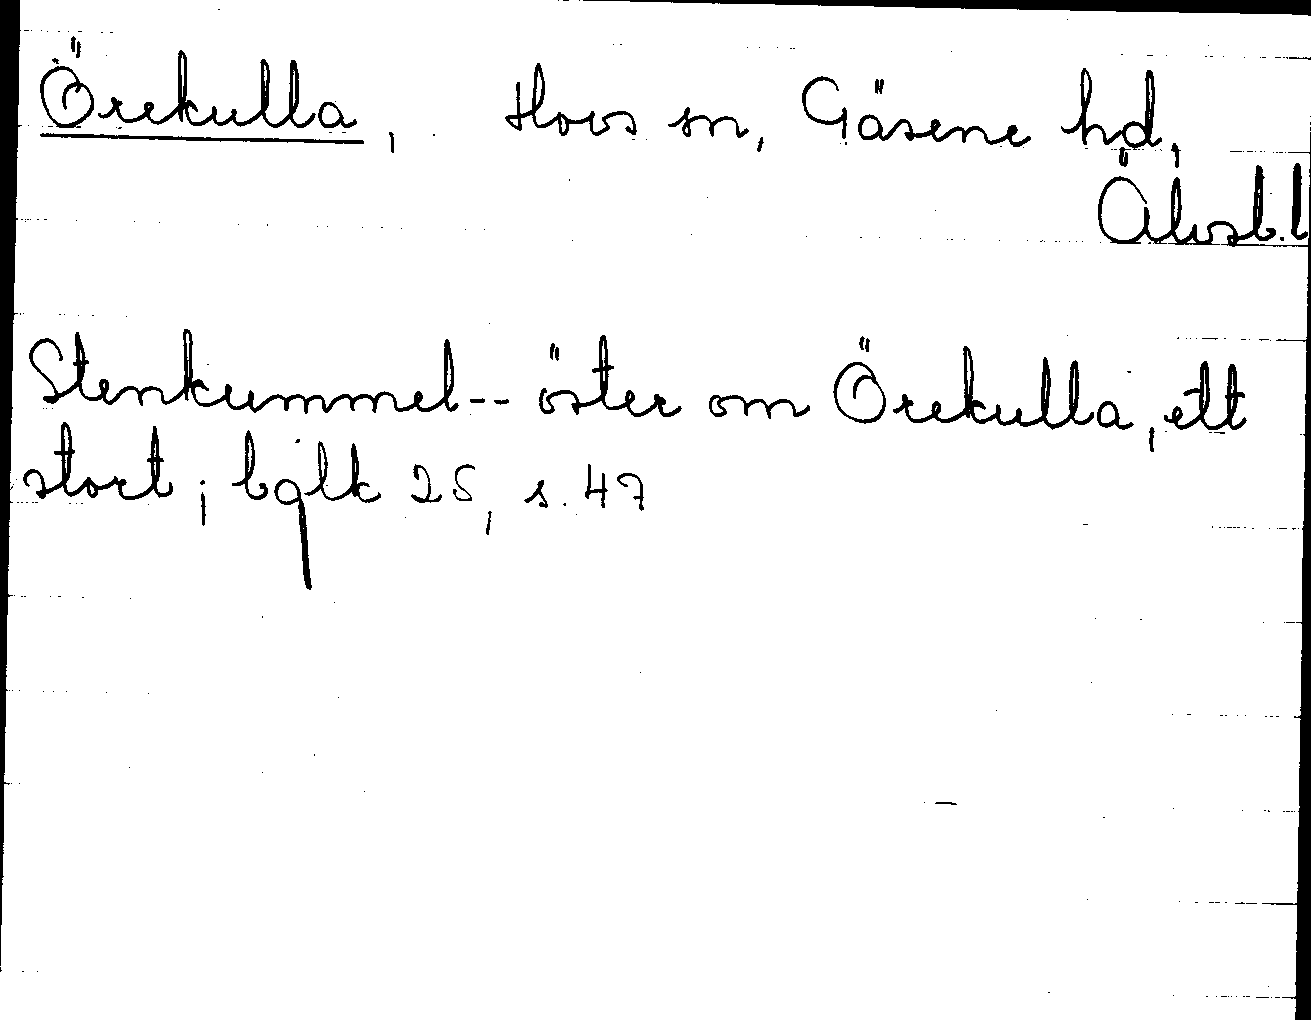 Örekulla, Hovs sn, Gäsene hd,
Älvsb.l
Stenkummel -- öster om Örekulla, ett
stort; bglk 25, s. 47